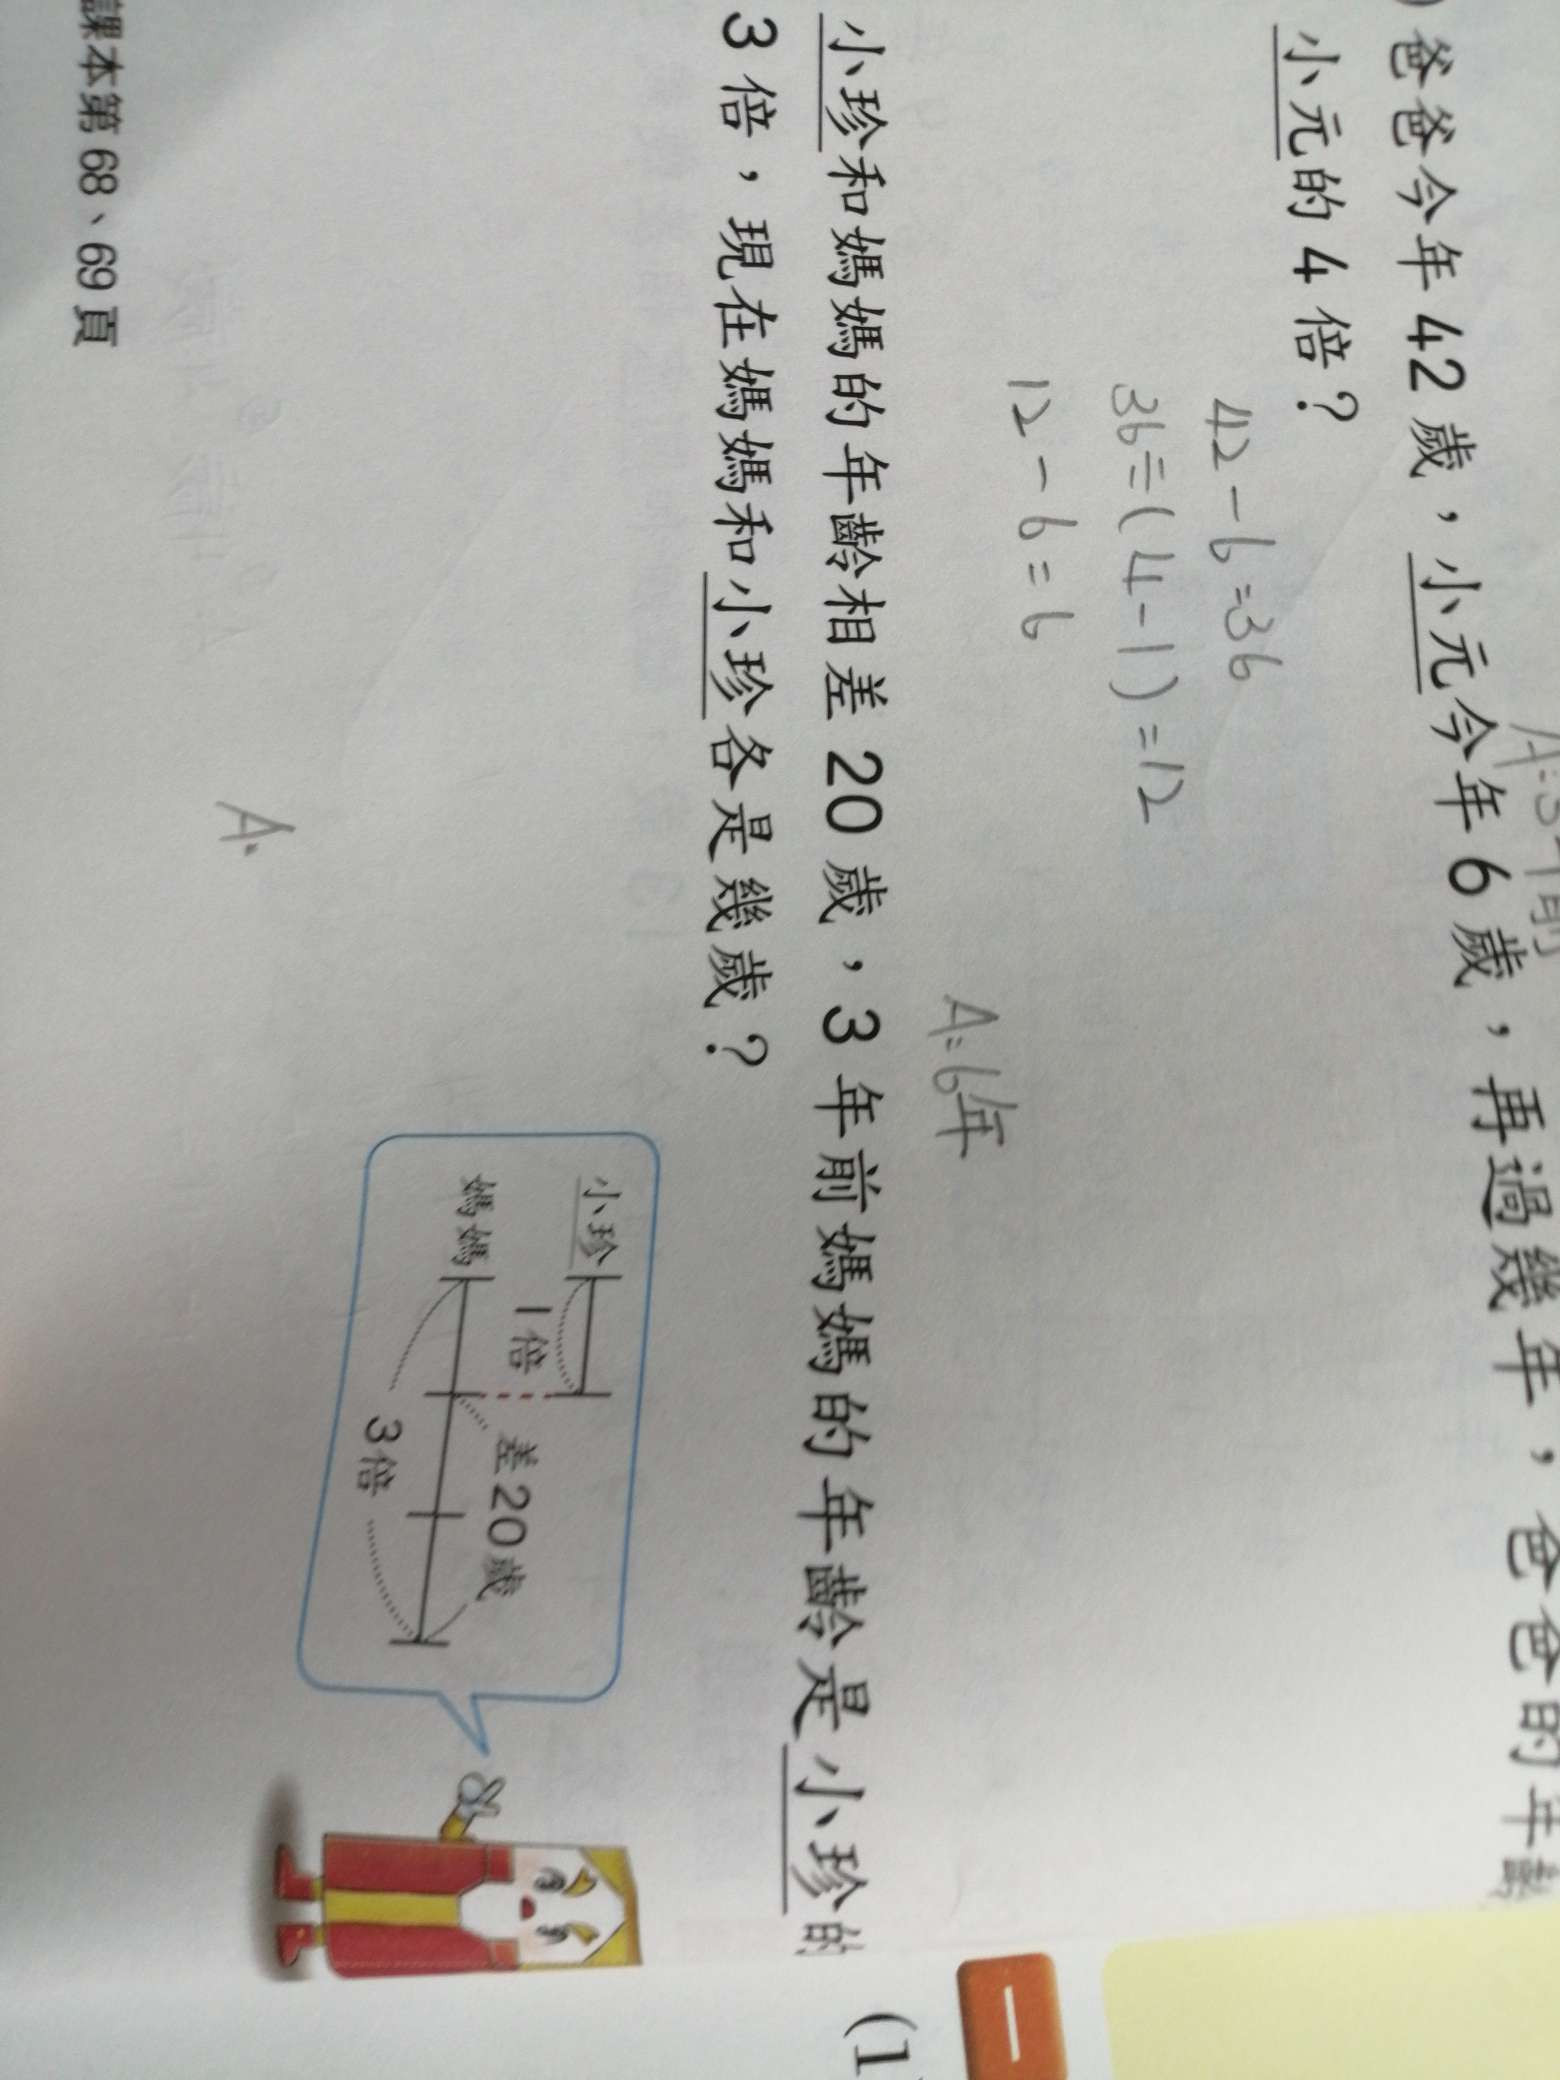 A:3年前
爸爸今年42歲，小元今年6歲，再過幾年，爸爸的年齡
小元的4倍？
42-6=36
36÷(4-1)=12
12-6=6
A:6年
小珍和媽媽的年齡相差20歲，3年前媽媽的年齡是小珍的
3倍，現在媽媽和小珍各是幾歲？
小珍
1倍
差20歲
媽媽
3倍
A:
課本第68、69頁
一
(1